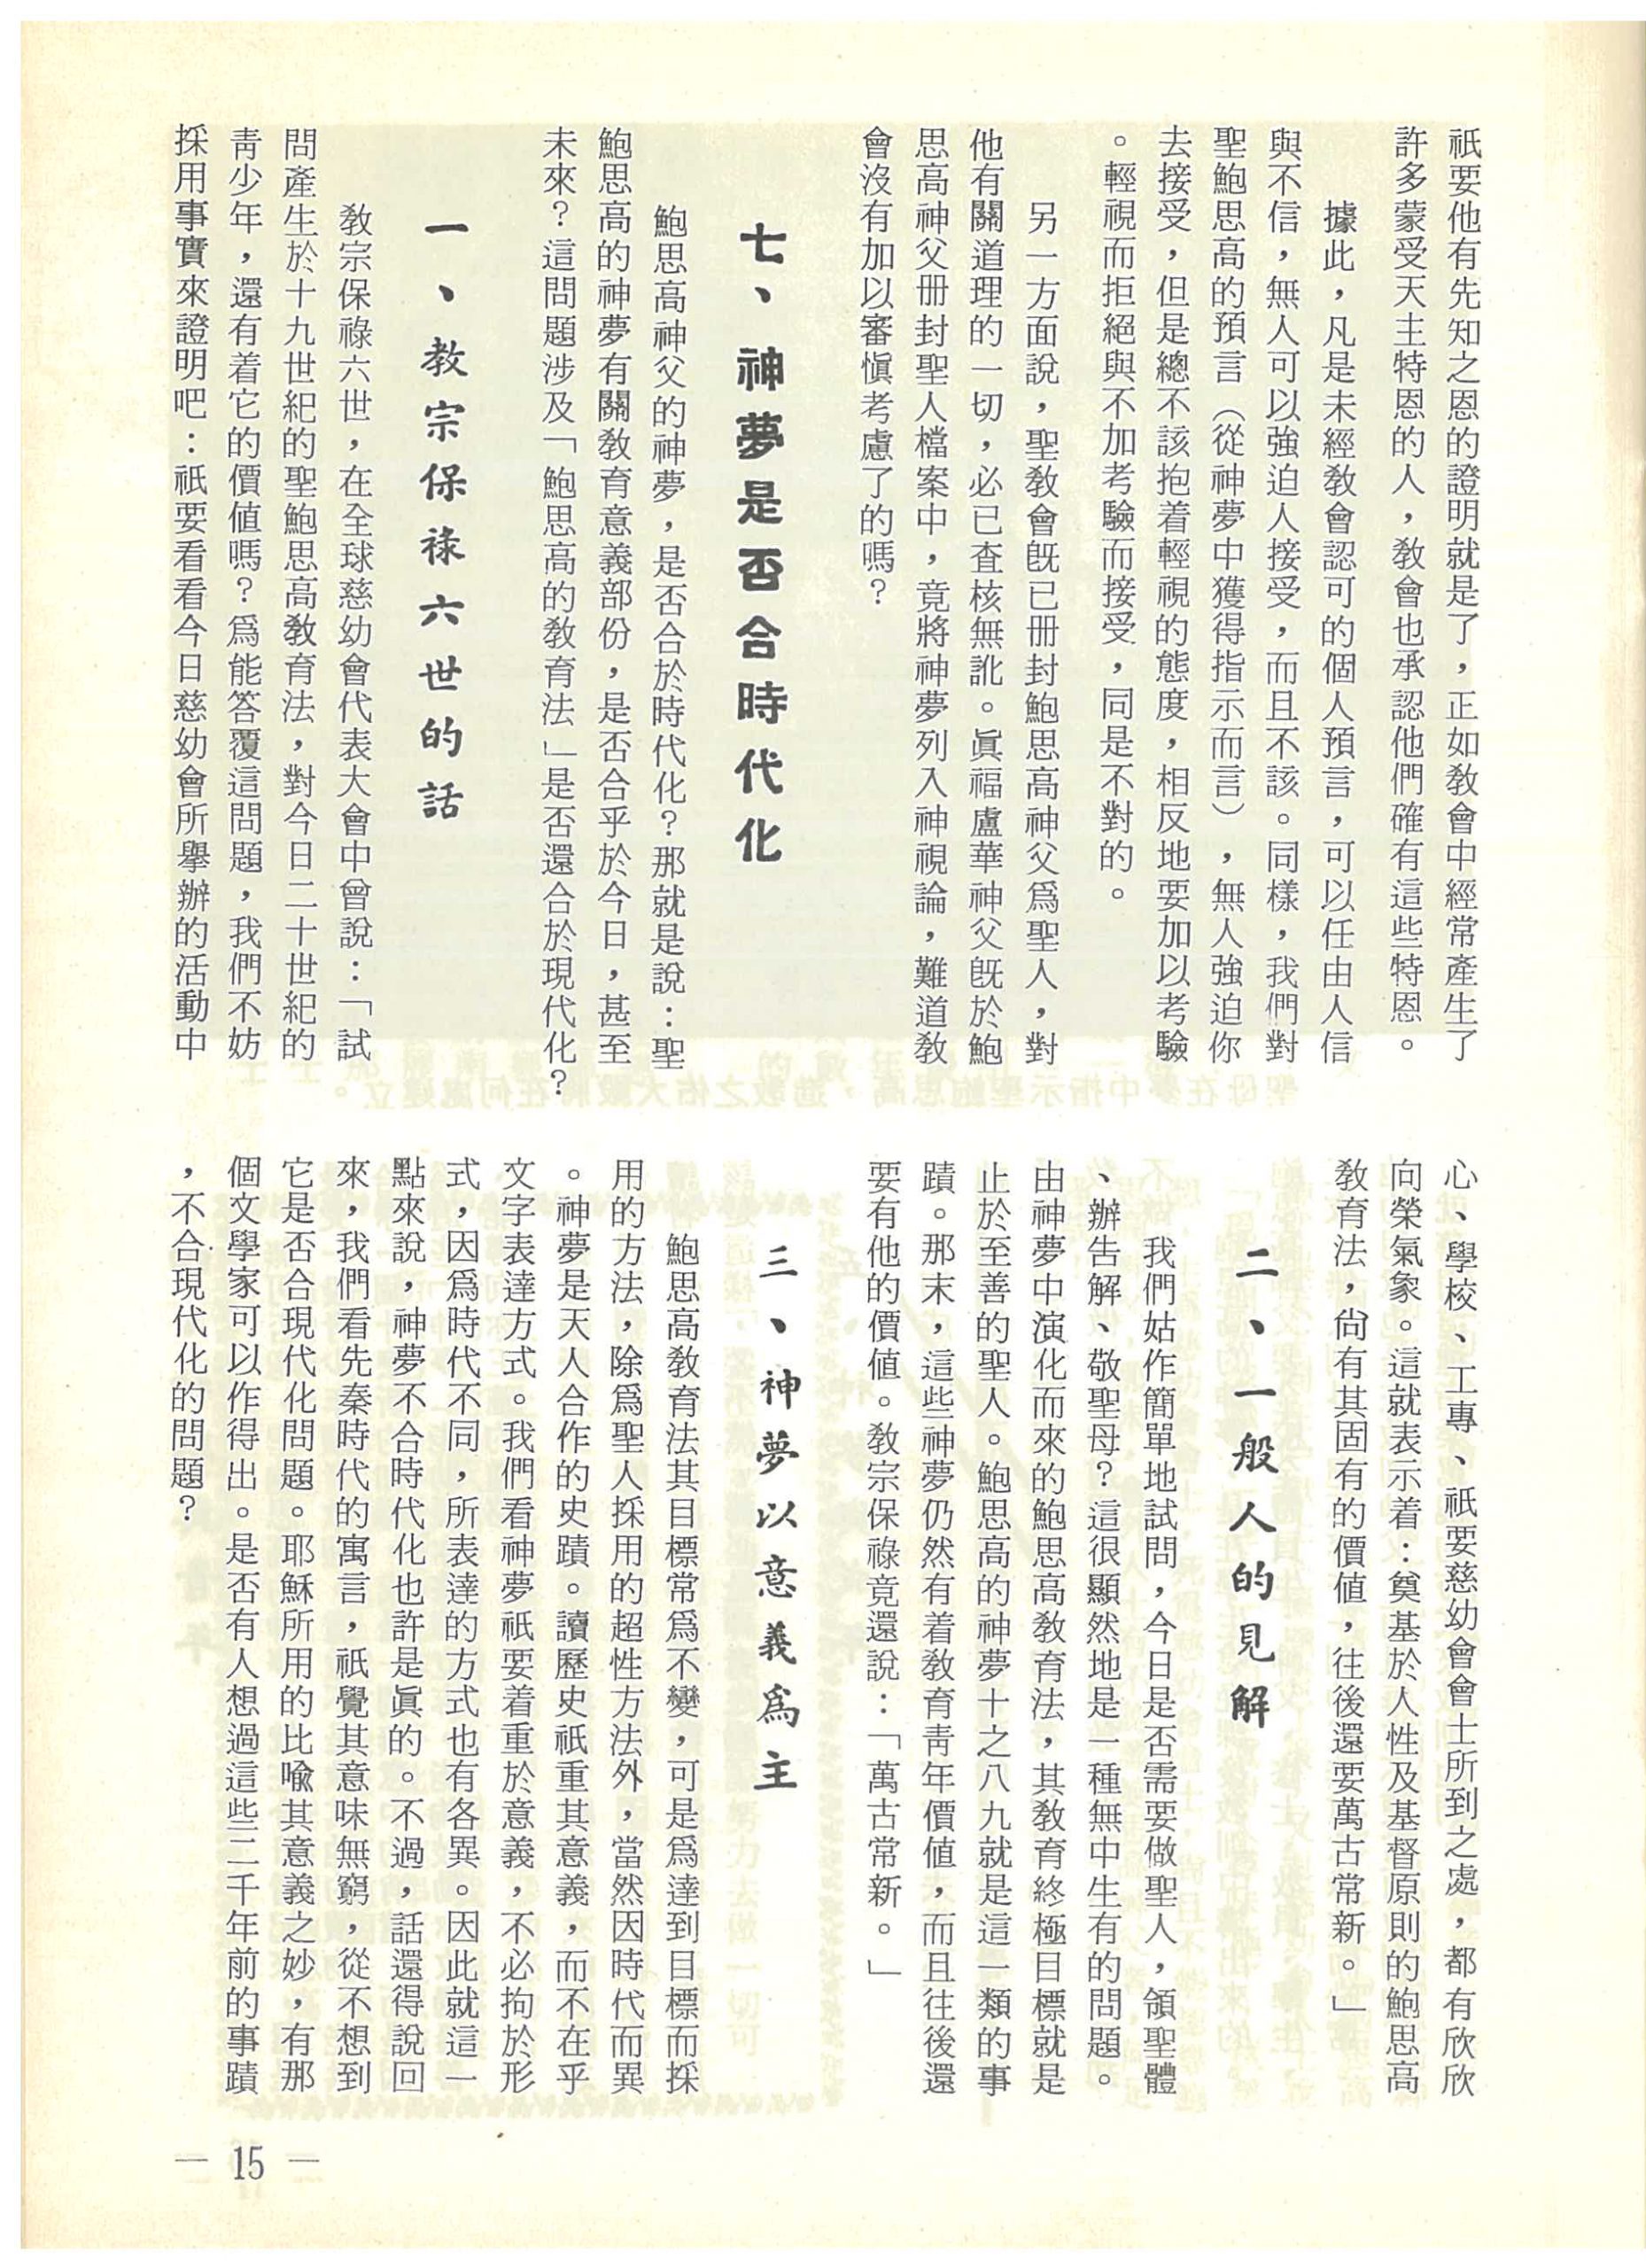 祇要他有先知之恩的證明就是了，正如敎會中經常產生了
許多蒙受天主特恩的人，敎會也承認他們確有這些特恩。
據此，凡是未經敎會認可的個人預言，可以任由人信
與不信，無人可以強迫人接受，而且不該。同樣，我們對
聖鮑思高的預言（從神夢中獲得指示而言），無人強迫你
去接受，但是總不該抱着輕視的態度，相反地要加以考驗
。輕視而拒絕與不加考驗而接受，同是不對的。
另一方面說，聖敎會旣已冊封鮑思高神父爲聖人，對
他有關道理的一切，必已查核無訛。眞福盧華神父旣於鮑
思高神父冊封聖人檔案中，竟將神夢列入神視論，難道敎
會沒有加以審愼考慮了的嗎？
七、神夢是否合時代化
鮑思高神父的神夢，是否合於時代化？那就是說：聖
鮑思高的神夢有關敎育意義部份，是否合乎於今日，甚至
未來？這問題涉及「鮑思高的敎育法」是否還合於現代化？
一、教宗保祿六世的話
敎宗保祿六世，在全球慈幼會代表大會中曾說：「試
問產生於十九世紀的聖鮑思高敎育法，對今日二十世紀的
靑少年，還有着它的價値嗎？爲能答覆這問題，我們不妨
採用事實來證明吧：祇要看看今日慈幼會所舉辦的活動中
心、學校、工專、祇要慈幼會會士所到之處，都有欣欣
向榮氣象。這就表示着：奠基於人性及基督原則的鮑思高
敎育法，尙有其固有的價値，往後還要萬古常新。」
二、一般人的見解
我們姑作簡單地試問，今日是否需要做聖人，領聖體
、辦告解、敬聖母？這很顯然地是一種無中生有的問題。
由神夢中演化而來的鮑思高敎育法，其敎育終極目標就是
止於至善的聖人。鮑思高的神夢十之八九就是這一類的事
蹟。那末，這些神夢仍然有着敎育靑年價値，而且往後還
要有他的價値。敎宗保祿竟還說：「萬古常新。」
三、神夢以意義爲主
鮑思高敎育法其目標常爲不變，可是爲達到目標而採
用的方法，除爲聖人採用的超性方法外，當然因時代而異
。神夢是天人合作的史蹟。讀歷史祇重其意義，而不在乎
文字表達方式。我們看神夢祇要着重於意義，不必拘於形
式，因爲時代不同，所表達的方式也有各異。因此就這一
點來說，神夢不合時代化也許是眞的。不過，話還得說回
來，我們看先秦時代的寓言，祇覺其意味無窮，從不想到
它是否合現代化問題。耶穌所用的比喩其意義之妙，有那
個文學家可以作得出。是否有人想過這些二千年前的事蹟
，不合現代化的問題？
— 15 —